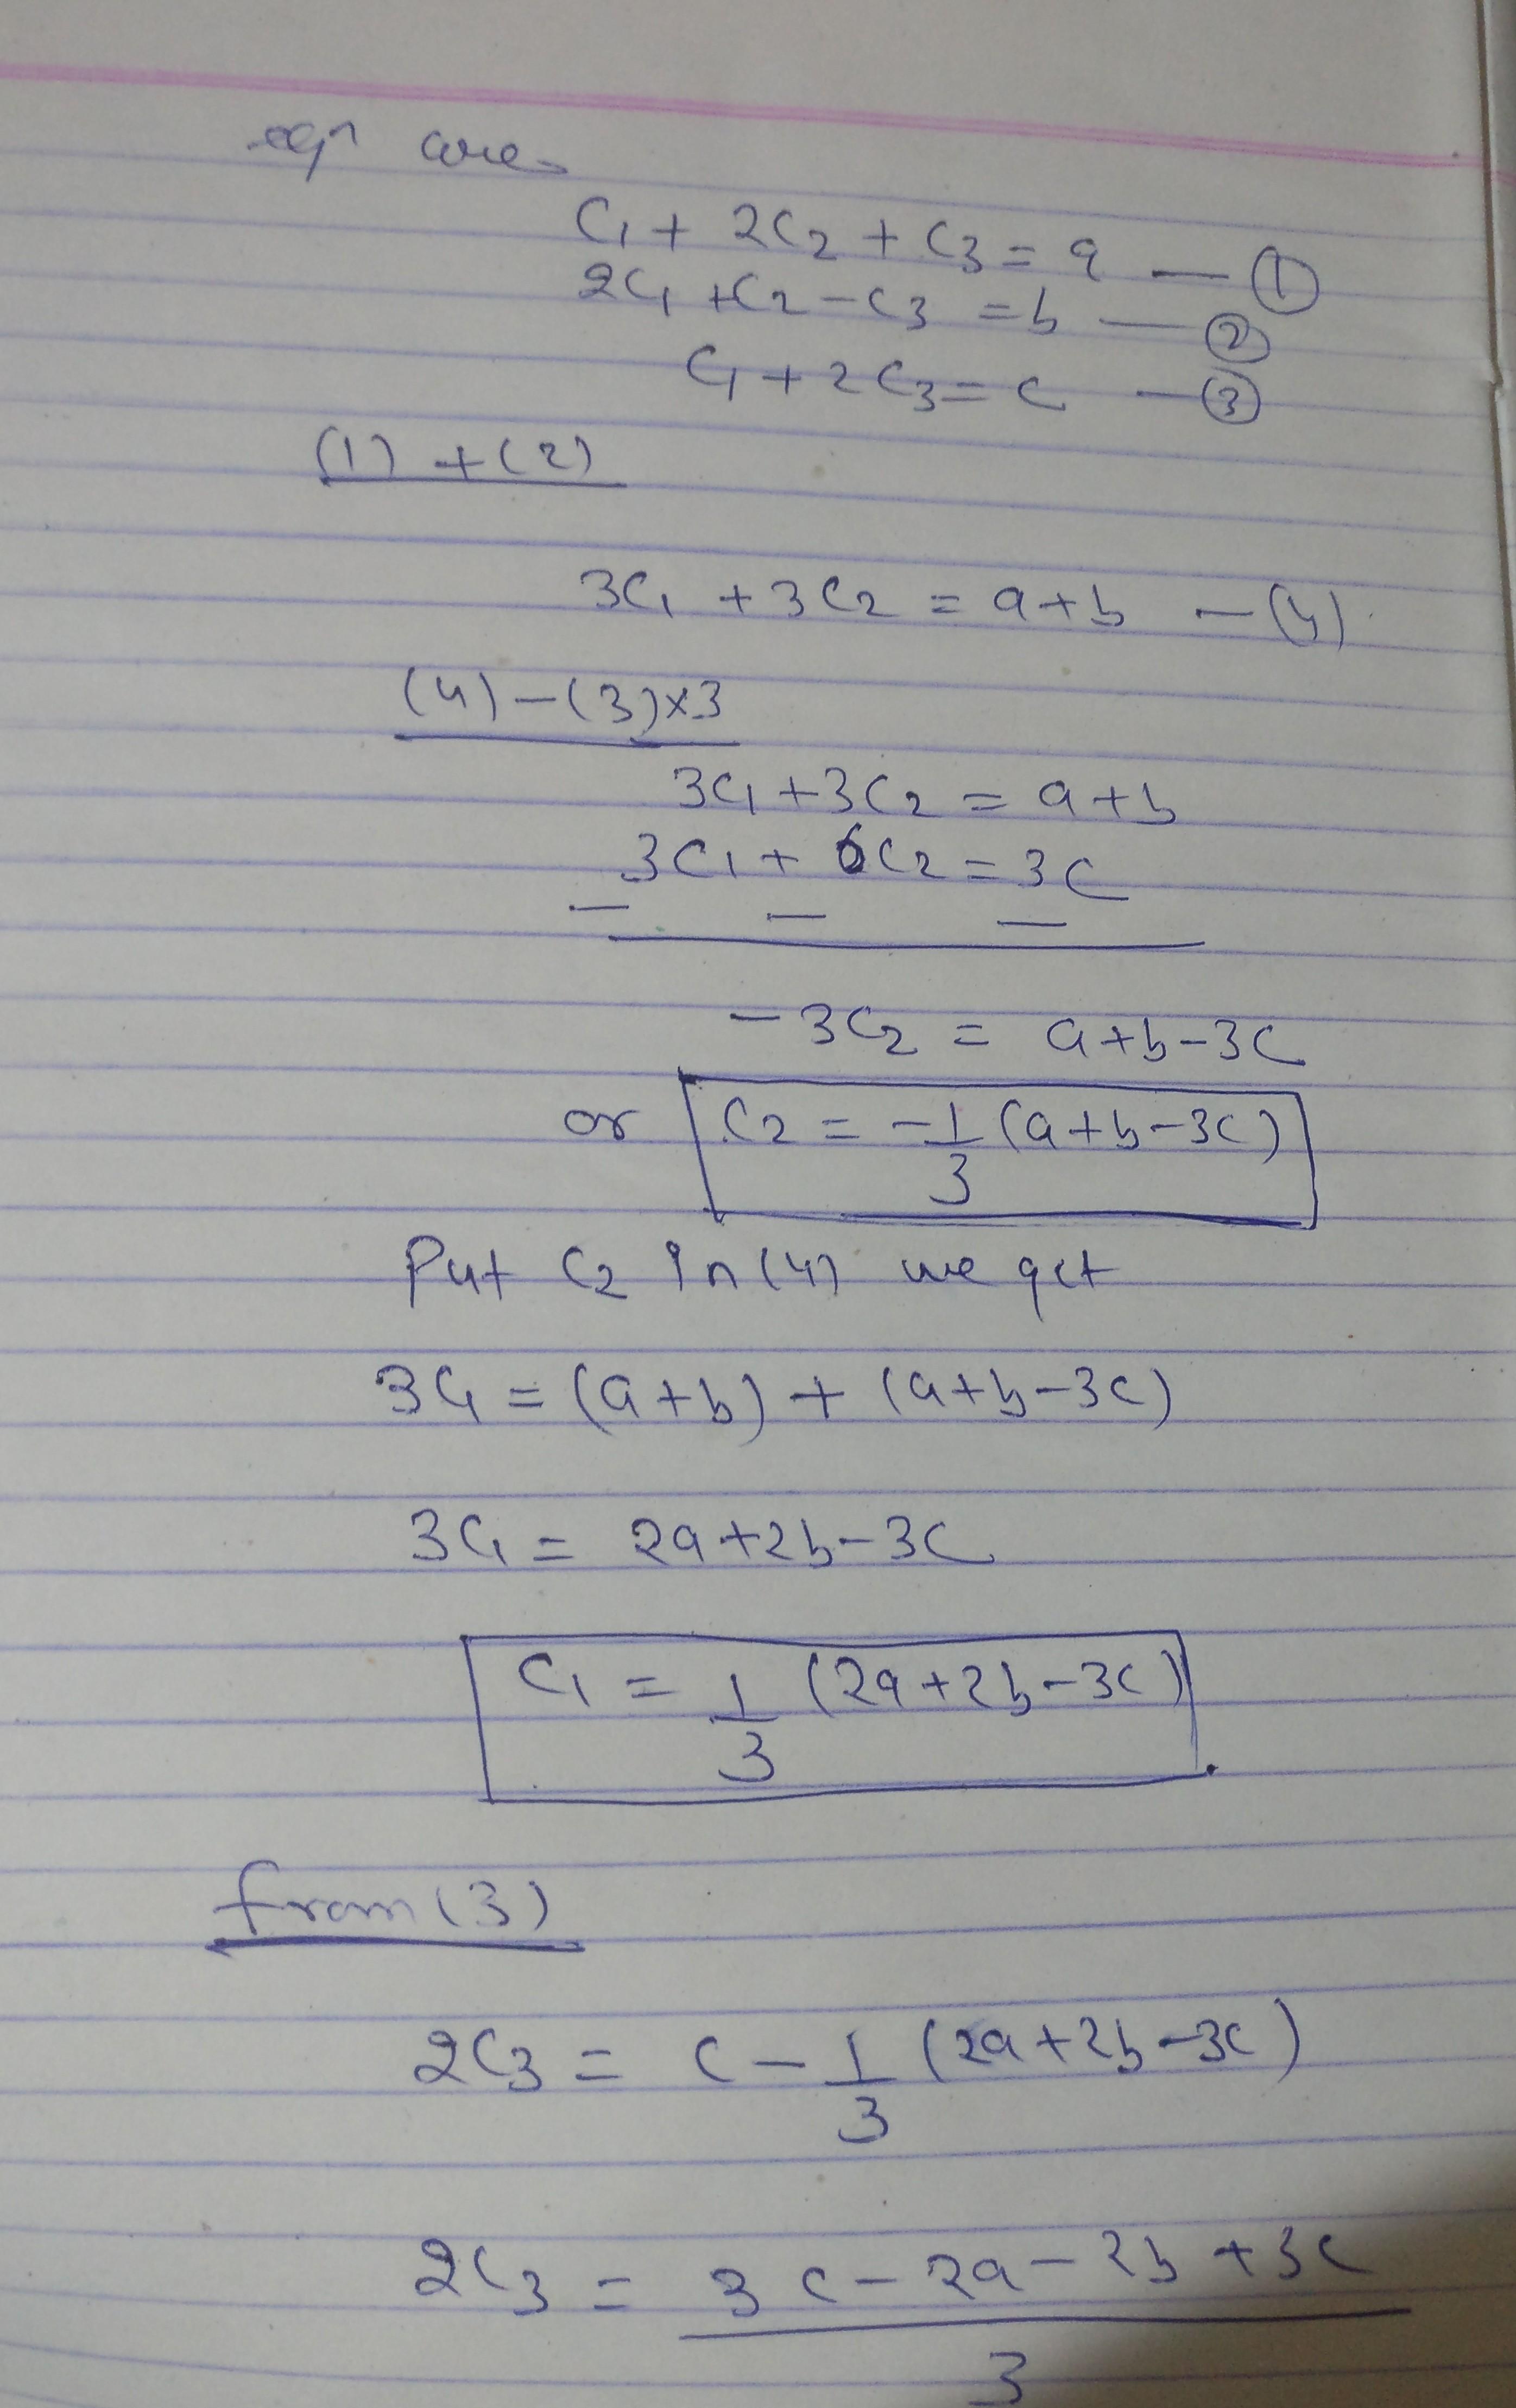 eqn are
C1 + 2C2 + C3 = a — ①
2C1 + C2 - C3 = b — ②
C1 + 2C3 = c — ③
(1) + (2)
3C1 + 3C2 = a+b — (4)
(4) - (3)×3
3C1 + 3C2 = a+b
3C1 + 6C2 = 3c
— — —
-3C2 = a+b-3c
or C2 = -1/3 (a+b-3c)
Put C2 in (4) we get
3C1 = (a+b) + (a+b-3c)
3C1 = 2a+2b-3c
C1 = 1/3 (2a+2b-3c)
from (3)
2C3 = c - 1/3 (2a+2b-3c)
2C3 = 3c-2a-2b+3c / 3